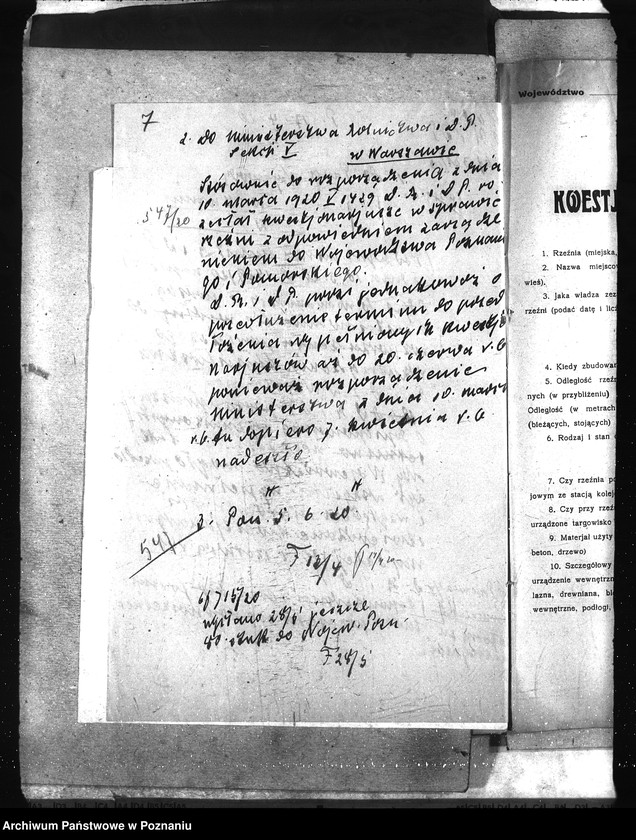 7
2. Do Ministerstwa Rolnictwa i D. P.
Sekcji V
w Warszawie
547/20
Stosownie do rozporządzenia z dnia
10. marca 1920 V 1429 D. R. i D. P. ro-
zesłał kwestjonarjusz w sprawie
rzeźni z odpowiedniem zarządze
nieniem do Województwa Poznań
go i Pomorskiego.
D. R. i D. P. prosi jednakowoż o
przedłużenie terminu do przed
łożenia wypełnionych kwestjo
narjuszów aż do 20. czerwca r. b.
ponieważ rozporządzenie
Ministerstwa z dnia 10. marca
r. b. tu dopiero 7. kwietnia r. b.
nadeszło
3. Pozn. 5. 6. 20
547
F 12/4
715/20
wysłano 28/5 jeszcze
80 sztuk do Wojew. Pozn.
F 28/5
Województwo
KWESTJ
1. Rzeźnia (miejska,
2. Nazwa miejscow
wieś).
3. Jaka władza zez
rzeźni (podać datę i licz
4. Kiedy zbudowan
5. Odległość rzeź
nych (w przybliżeniu)
Odległość (w metrach
(bieżących, stojących)
6. Rodzaj i stan
7. Czy rzeźnia po
jowym ze stacją kolej
8. Czy przy rzeź
urządzone targowisko
9. Materjał użyty
beton, drzewo)
10. Szczegółowy
urządzenie wewnętrzn
lazna, drewniana, bl
wewnętrzne, podłogi,
Archiwum Państwowe w Poznaniu